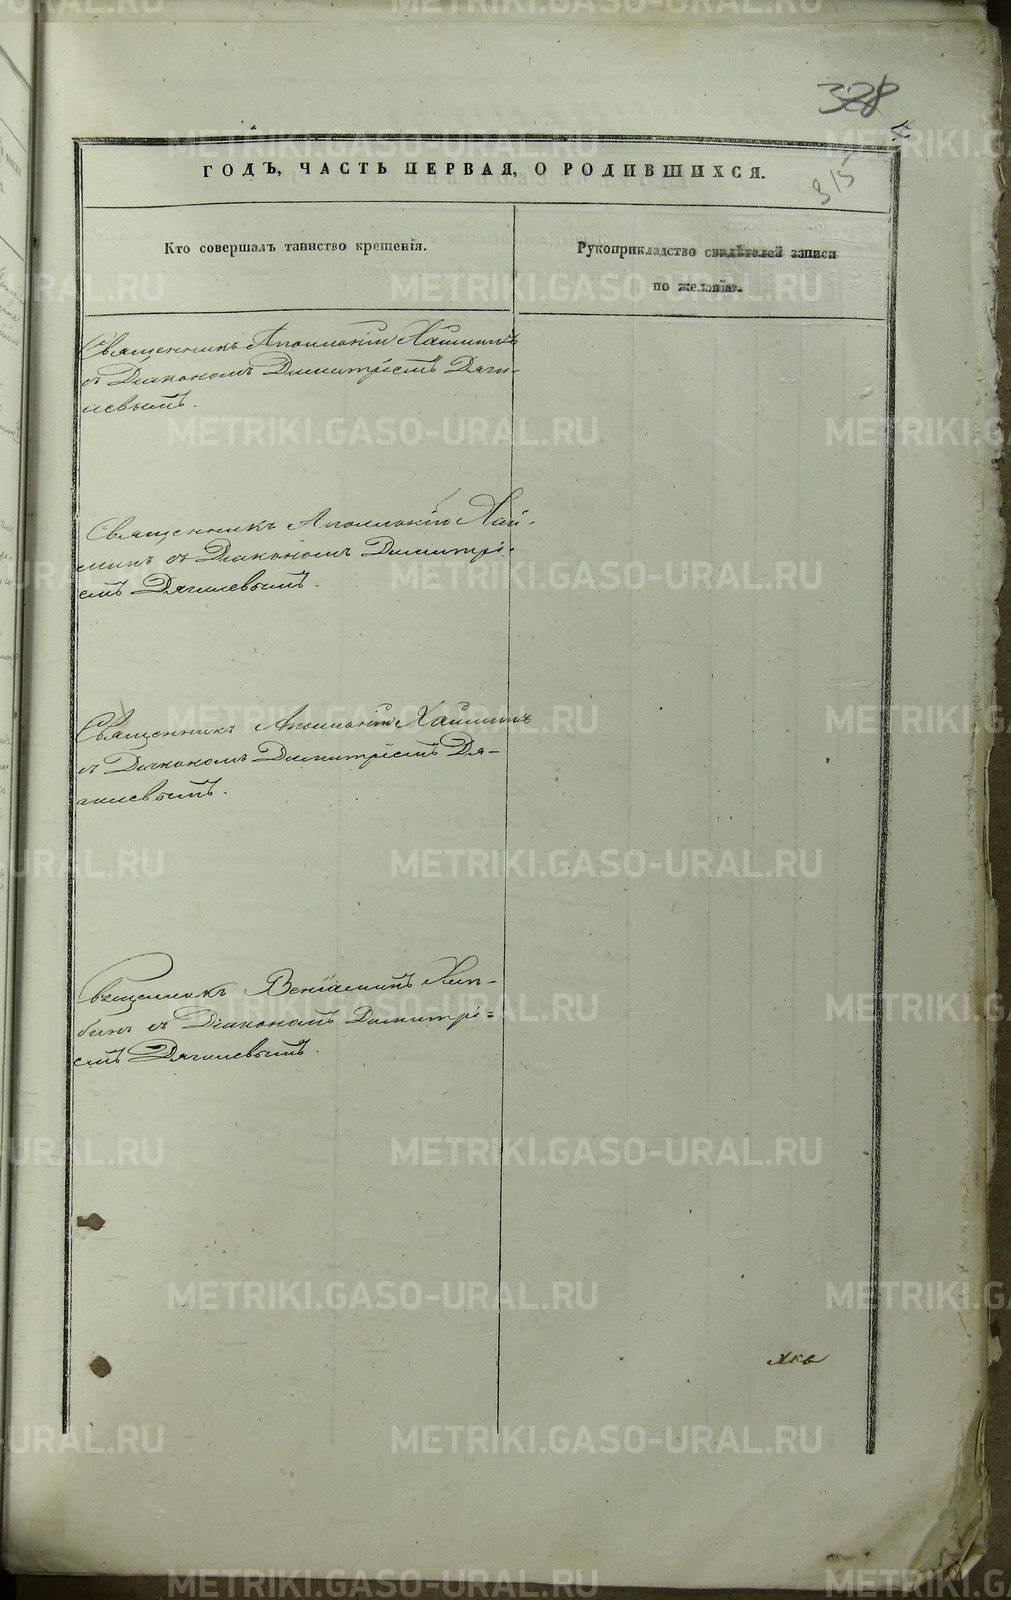 328
315
ГОДЪ, ЧАСТЬ ПЕРВАЯ, О РОДИВШИХСЯ.
Кто совершалъ таинство крещенія.
Рукоприкладство свидѣтелей записи
по желанію.
Священникъ Аполлоній Хайминъ
съ Діакономъ Димитріемъ Дяги-
левымъ.
Священникъ Аполлоній Хай-
минъ съ Діакономъ Димитрі-
емъ Дягилевымъ.
Священникъ Аполлоній Хайминъ
съ Діакономъ Димитріемъ Дя-
гилевымъ.
Священникъ Веніаминъ
съ Діакономъ Димитрі=
емъ Дягилевымъ.
METRIKI.GASO-URAL.RU